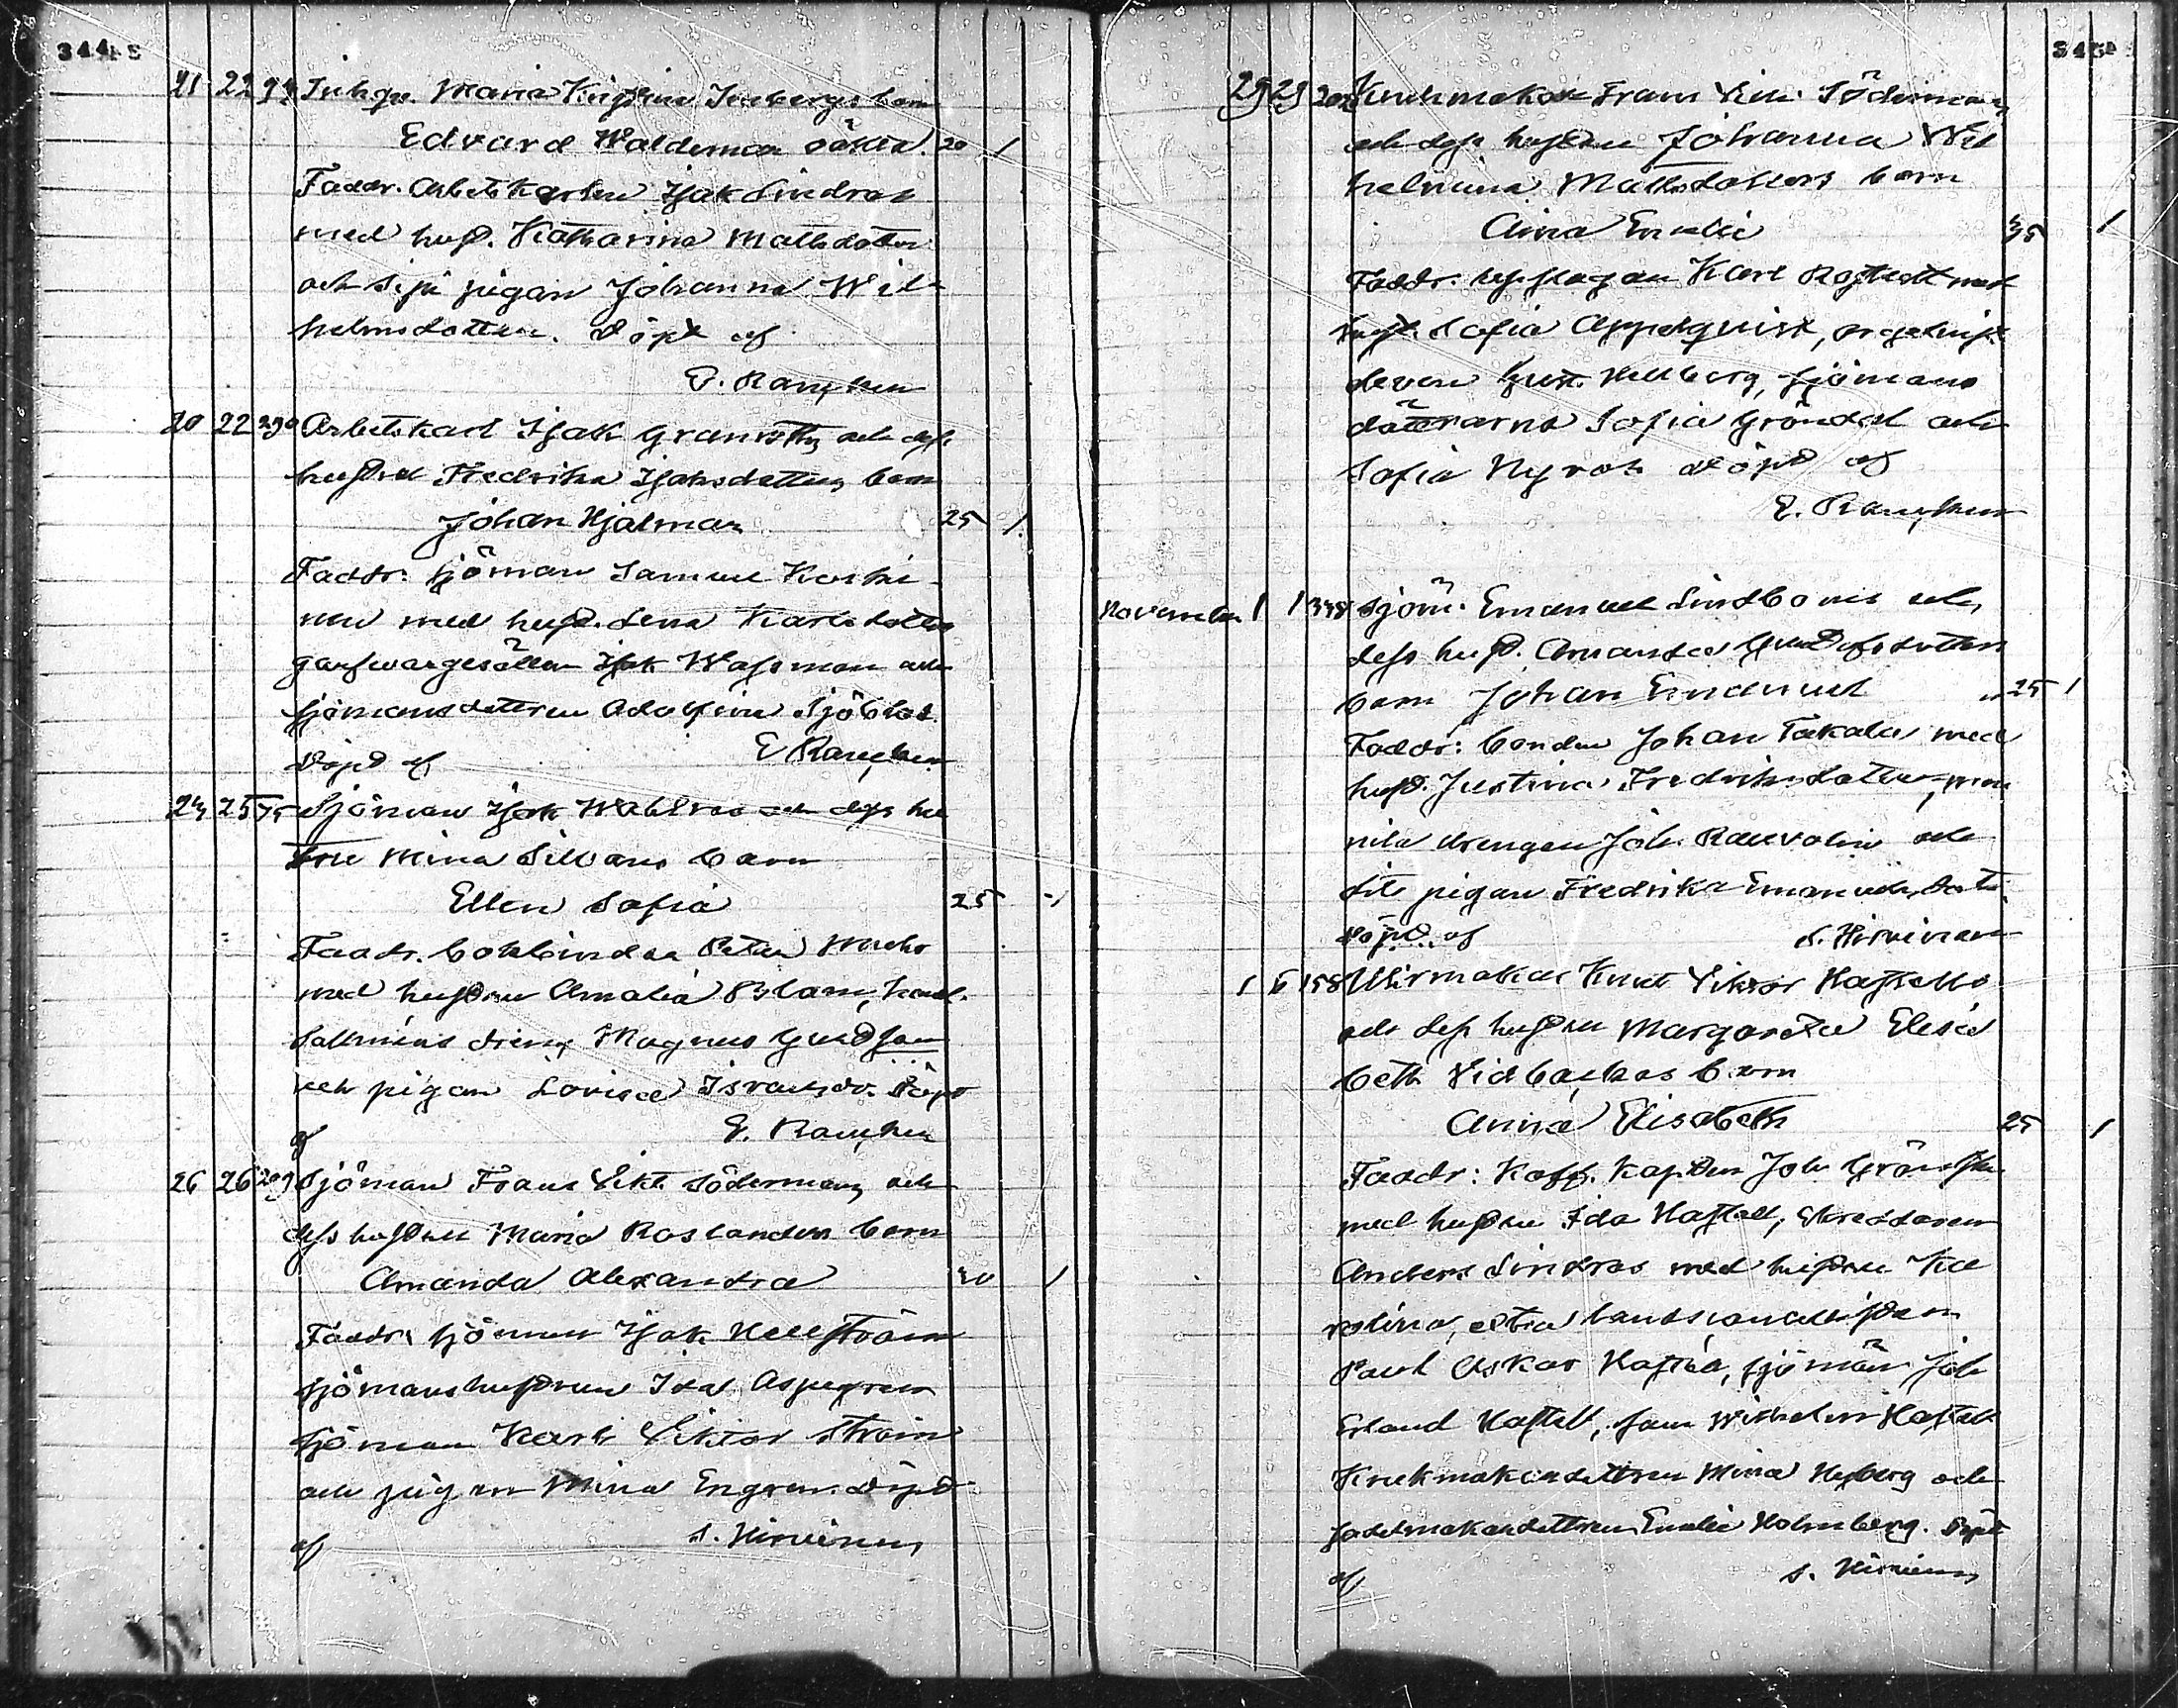 344
21 22 94 Inhqv. Maria Kristina Isebergs barn
Edvard Waldemar oäkta. 20 1
Faddr. Arbetskarlen Isak Lindros
med hust. Katharina Mattsdotter
och pigan Johanna Wil-
helmsdotter. Döpt af
E. Rancken
20 22 290 Arbetskarl Isak Granroth och dess
hustru Fredrika Isaksdotters barn
Johan Hjalmar 25 1.
Faddr: sjöman Samuel Koski-
nen med hust. Lena Karlsdotter
garfwaregesällen Isak Wassman och
sjömansdottren Adolfina Sjöblad.
Döpt af E Rancken
24 25 75 Sjöman Isak Wahlroos och dess hu
stru Mina Sillbans barn
Ellen Sofia 25 1
Faddr. bokbindar Peter
med hustru Amalia Blom,
dräng Magnus Gustafsson
och pigan Lovisa Israelsdr. Döpt
af E. Rancken
26 26 209 Sjöman Frans Vikt. Söderman och
dess hustru Maria Roslanders barn
Amanda Alexandra 30 1
Faddr. sjöman Isak Hellström
sjömanshustrun Ida Aspegren
sjöman Karl Viktor Ström
och pigan Mina Engren. Döpt
af S. Hirvinen
345
29 29 202 Krukmakar Frans Vikt. Söderman
och dess hustru Johanna Wil
helmina Mattsdotters barn
Aina Emelie 35 1
Faddr. repslagaren Karl Rostedt med
hust. Sofia Appelqvist, orgelnist
eleven Gust. Hellberg, sjömans
döttrarna Sofia Gröndal och
Sofia Nyroos Döpt af
E. Rancken
November 1 1 348 Sjöm. Emanuel Lindboms och
dess hust. Amanda Gustafsdotters
barn Johan Emanuel 25 1
Faddr: bonden Johan Takala med
hust. Justina Fredriksdotter,
drengen Joh. Rauvola och
pigan Fredrika Emanuelsdotter
Döpt af S. Hirvinen
1 6 158 Urmakar Knut Viktor Hastells
och dess hustru Margareta Elisa
beth Vidbackas barn
Anna Elisabeth 25 1
Faddr: Koff. kapten Joh Grönst
med hustru Ida Hastell, skreddaren
Anders Lindros med hustru Ka
rolina, extra landskanslisten
Paul Oskar Hastell, sjöman Joh
Erland Hastell, Wilhelm Hastell
Krukmakaredottren Mina Nyberg och
sadelmakaredottren Emelie Holmberg. Döpt
af S. Hirvinen